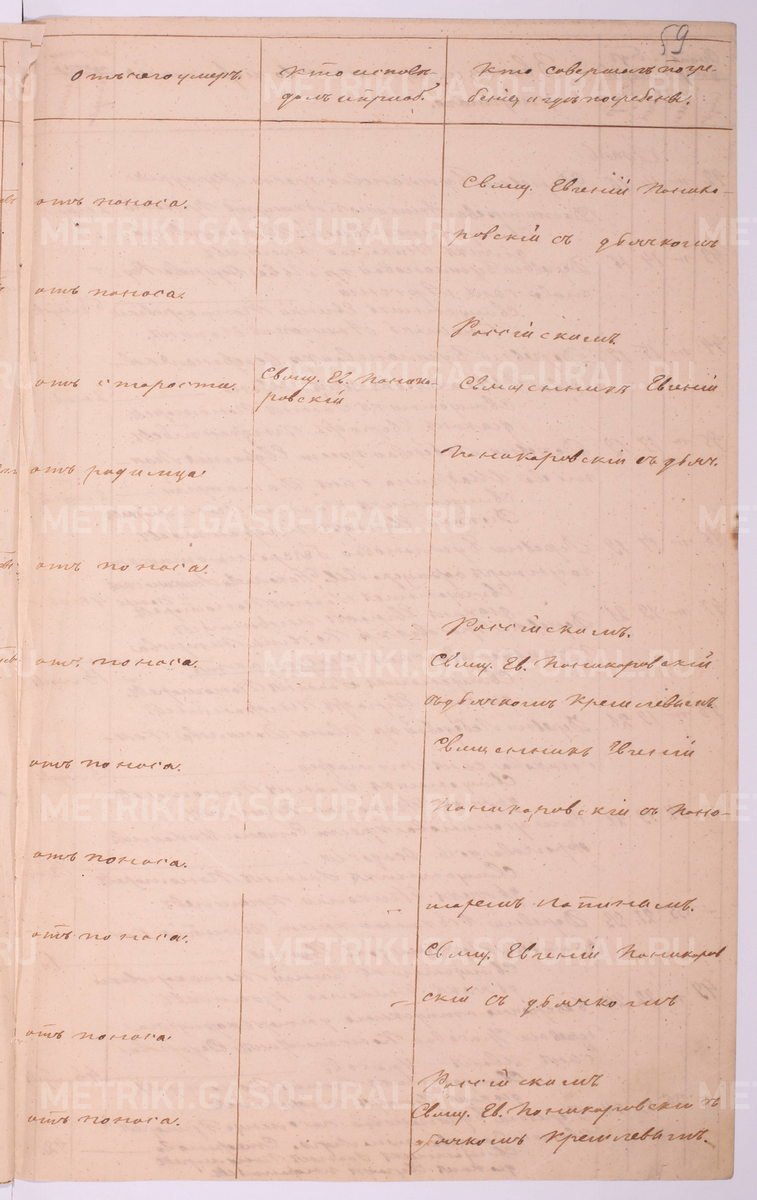 59
Отъ чего умеръ.
Кто исповѣ-
далъ и приоб.
Кто совершалъ погре-
беніе и гдѣ погребены.
отъ поноса.
Свящ. Евгеній Поника-
ровскій съ дьячкомъ
отъ поноса.
Россійскимъ
отъ старости.
Свящ. Ев. Поника-
ровскій
Священникъ Евгеній
Поникаровскій съ дьяч.
отъ родимца
отъ поноса.
Россійскимъ.
отъ поноса.
Свящ. Ев. Поникаровскій
съ дьячкомъ Кремлевымъ
Священникъ Евгеній
отъ поноса.
Поникаровскій съ поно-
отъ поноса.
маремъ Папинымъ.
отъ поноса.
Свящ. Евгеній Поникаров
скій съ дьячкомъ
отъ поноса.
Россійскимъ
отъ поноса.
Свящ. Ев. Поникаровскій съ
дьячкомъ Кремлевымъ.
METRIKI.GASO-URAL.RU